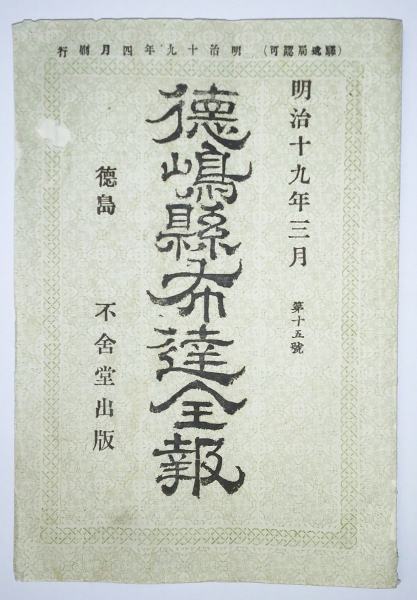 （驛遞局認可）明治十九年四月刷行
明治十九年三月 第十五號
德嶋縣布達全報
徳島 不舍堂出版